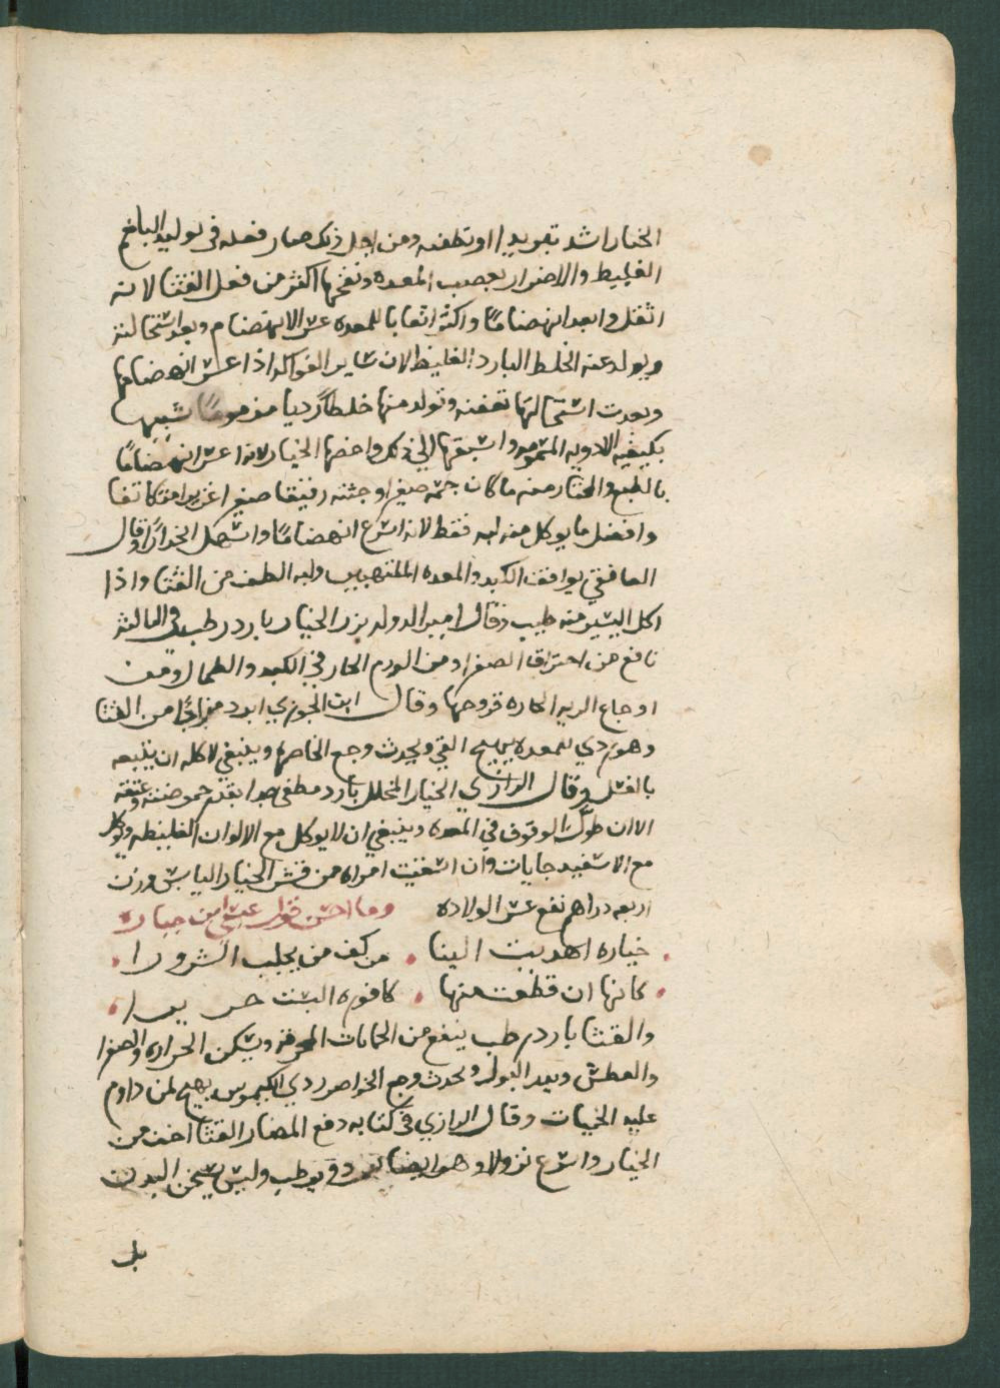 الخيار اشد تبريدا او تطفيه ومن اجل ذلك صار فعله في توليد البلغم
الغليظ والاضرار بعصب المعده ونفخها اكثر من فعل القثا لانه
اثقل وابعد انهضامًا واكثر اتعابا للمعده عسر الانهضام وبعد استحالته
ويولد عنه الخلط البارد الغليظ لان ساير الفواكه اذا عسر انهضامها
وبعدت استحالتها تعفنه وتولد منها خلطاً رديا مذمومًا شبيها
بكيفيه الادويه المسمومه واسبقها الي ذلك واخصها الخيار لانه اعسر انهضامًا
بالطبع والمختار منه ما كان جسمه صغيرا وجثته رقيقا صغيرا غزيرا متكاتفا
وافضل ما يوكل منه لبه فقط لانه اسرع انهضامًا واسهل انحدارًا وقال
الغافقي يوافق الكبد والمعده الملتهبين ولبه الطف من القثا واذا
اكل اليسير منه طيب وقال امير الدوله بزر الخيار بارد رطب في الثالثه
نافع من احتراق الصفرا ومن الورم الحار في الكبد والطحال ومن
اوجاع الريه الحاره قروحها وقال ابن الجوزي ابرد مزاجًا من القثا
وهو ردي للمعده يهيج القي ويحدث وجع الخاصره وينبغي لاكله ان يتبعه
بالعسل وقال الرازي الخيار المخلل بارد مطفي جدا بقدر حموضته وعتقه
الا ان طول الوقوف في المعده وينبغي ان لا يوكل مع الالوان الغليظه ويوكل
مع الاسفيدجايات وان اسقيت امراه من قشر الخيار اليابس وزن
اربعه دراهم نفع عسر الولاده وما احسن قول
خياره اهديت الينا . من كف من يجلب السرورا .
كانها ان قطعت منها . كافوره البست حريرا .
والقثا بارد رطب ينفع من الحمايات المحرقه ويسكن الحراره والصفرا
والعطش ويدر البول ويحدث وجع الخواصر ردي الكيموس يهيج لمن داوم
عليه الحميات وقال الرازي في كتابه دفع المضار القثا اخف من
الخيار واسرع نزولا وهو ايضا يبرد ويرطب وليس يسخن البدن
بل